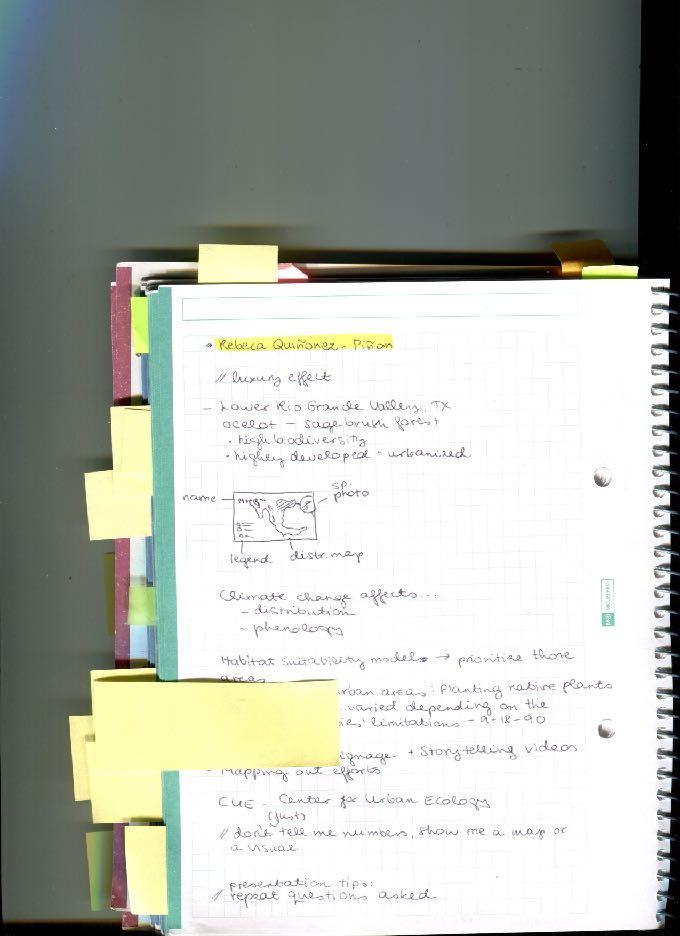 • Rebeca Quiñonez - Piñon
// luxury effect
- Lower Rio Grande Valley, TX
ocelot - sagebrush forest
• high biodiversity
• highly developed + urbanized
name
sp.
photo
legend distr. map
Climate change affects...
- distribution
- phenology
Habitat suitability models → prioritize those
areas
urban areas: Planting native plants
varied depending on the
limitations - 9-18-90
signage + Storytelling videos
- Mapping out efforts
CUE - Center for Urban Ecology
(just)
// don't tell me numbers, show me a map or
a visual
presentation tips:
// repeat questions asked